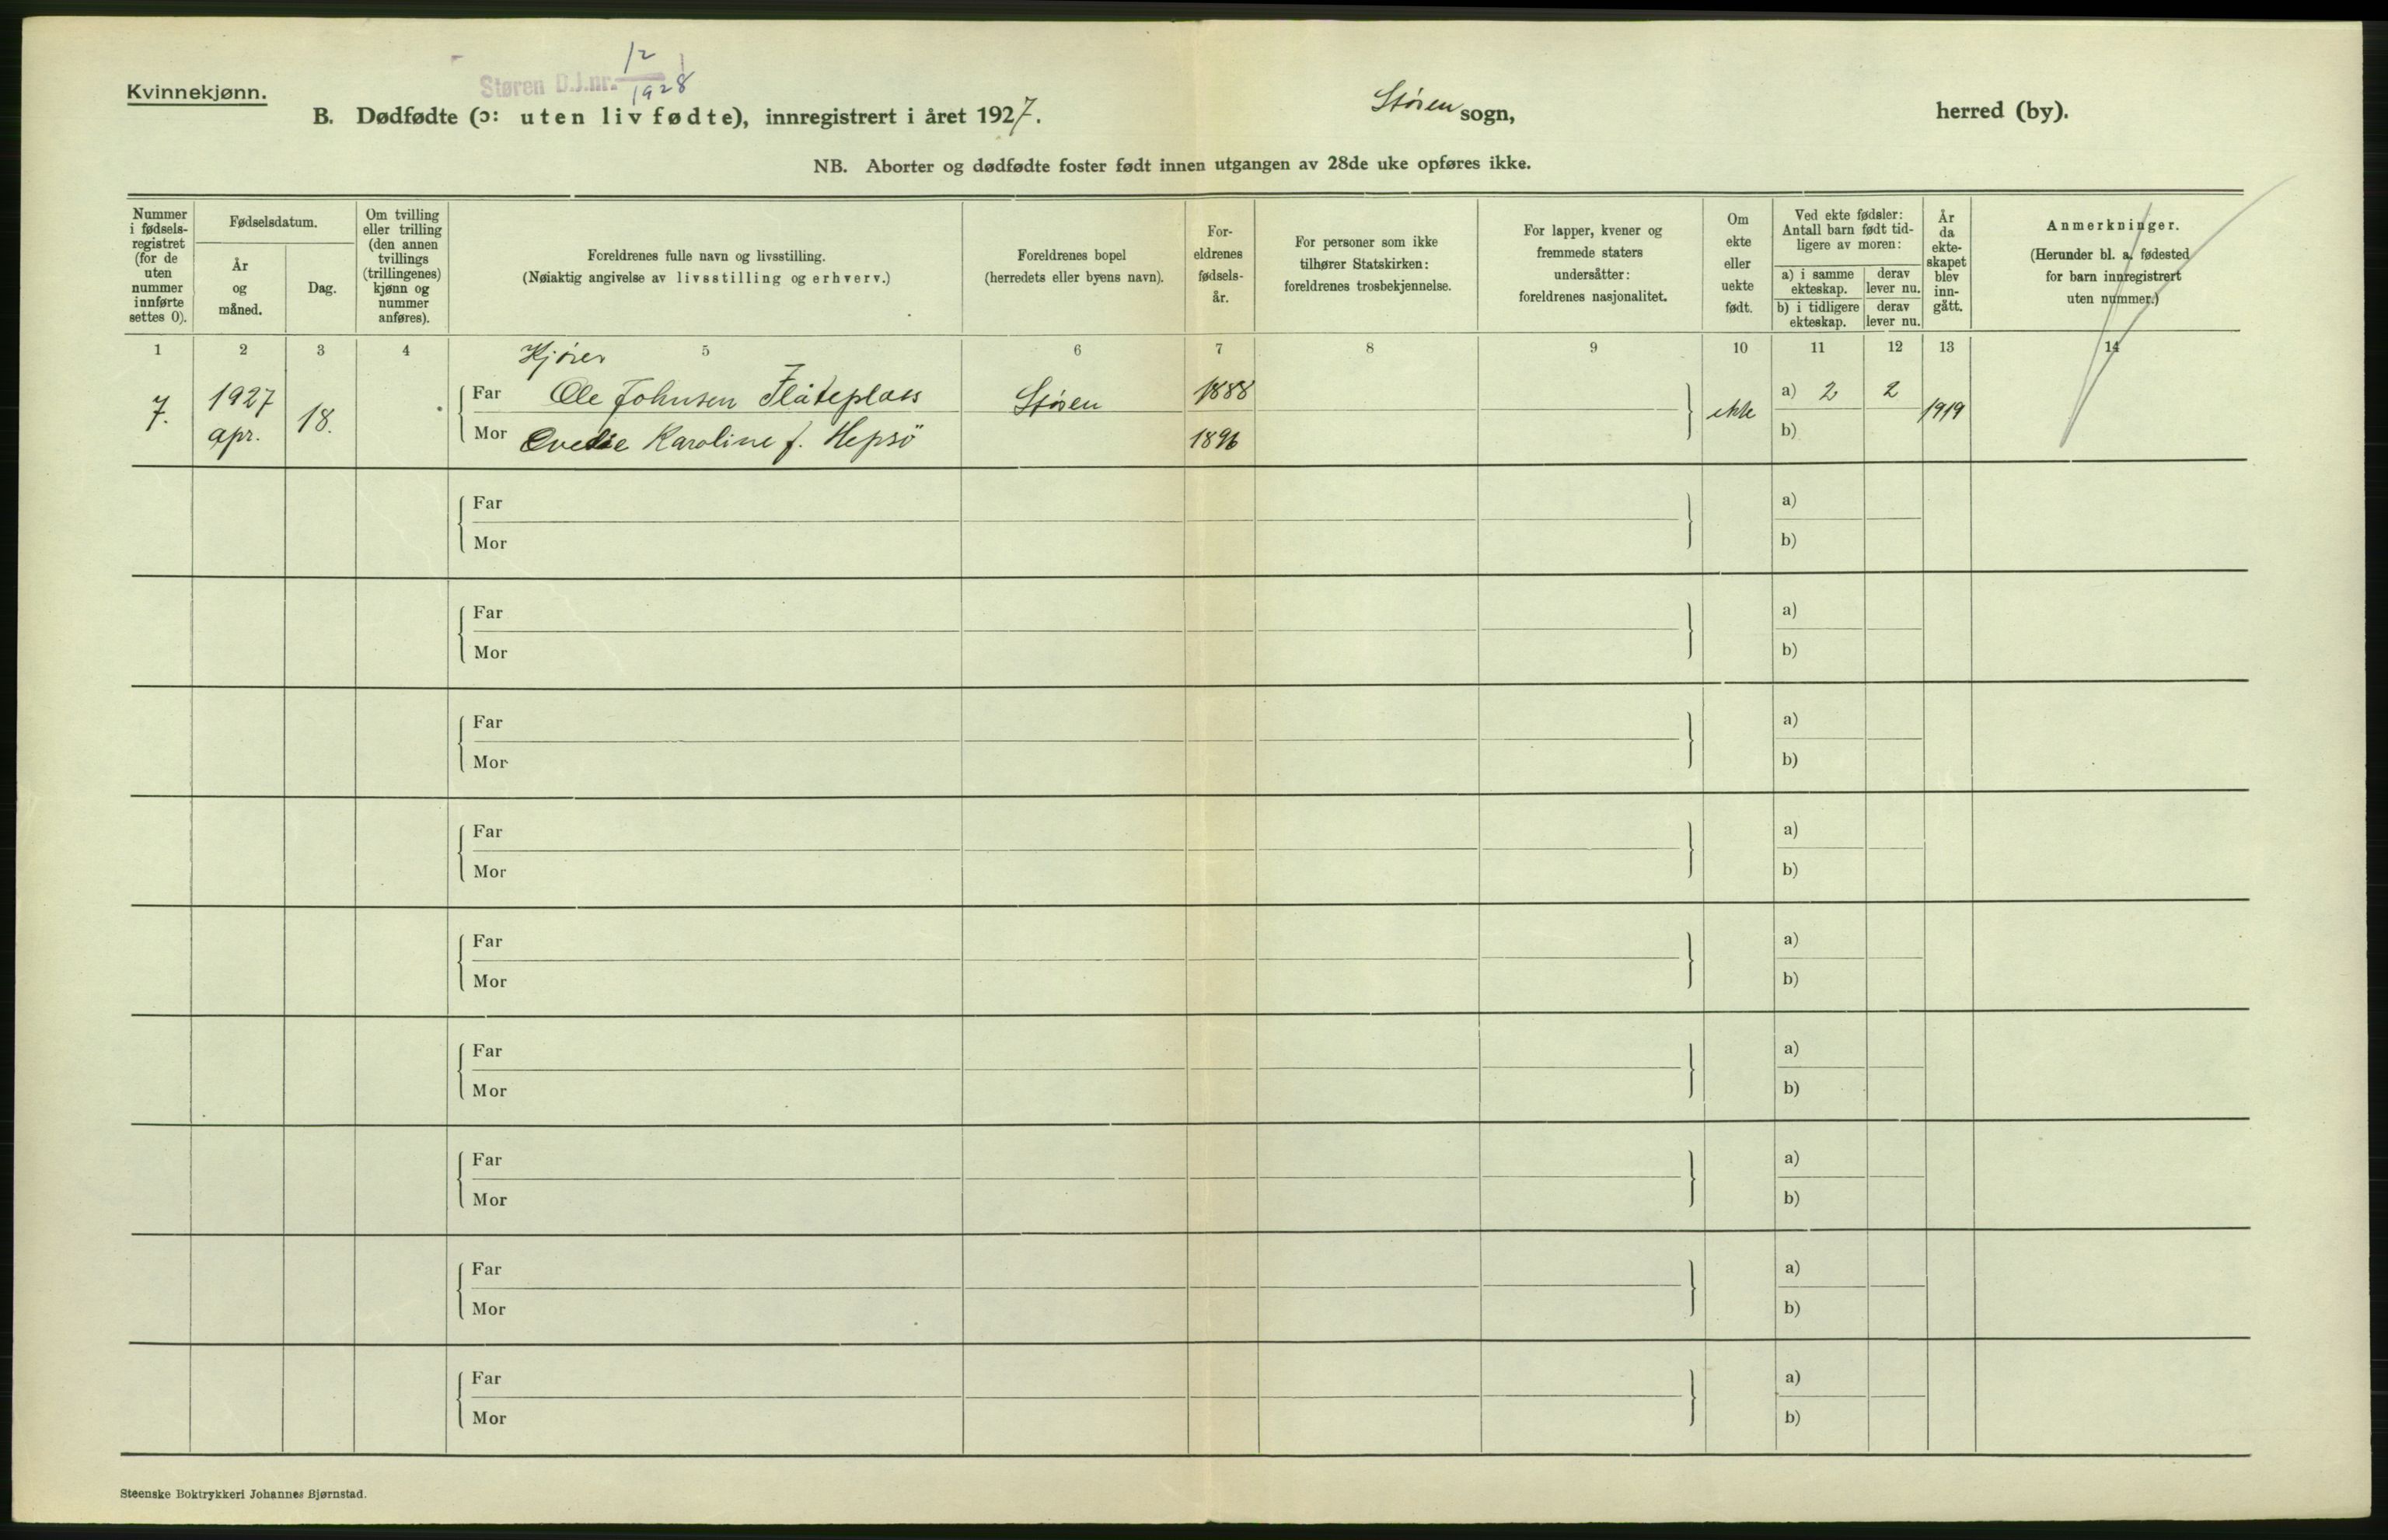 Kvinnekjønn.
Støren D.J.nr. 12/1928
B. Dødfødte (ɔ: uten liv fødte), innregistrert i året 1927.
Støren sogn,
herred (by).
NB. Aborter og dødfødte foster født innen utgangen av 28de uke opføres ikke.
Nummer i fødselsregistret (for de uten nummer innførte settes 0).
Fødselsdatum.
År og måned.
Dag.
Om tvilling eller trilling (den annen tvillings (trillingenes) kjønn og nummer anføres).
Foreldrenes fulle navn og livsstilling.
(Nøiaktig angivelse av livsstilling og erhverv.)
Foreldrenes bopel
(herredets eller byens navn).
Foreldrenes fødselsår.
For personer som ikke tilhører Statskirken: foreldrenes trosbekjennelse.
For lapper, kvener og fremmede staters undersåtter: foreldrenes nasjonalitet.
Om ekte eller uekte født.
Ved ekte fødsler: Antall barn født tidligere av moren:
a) i samme ekteskap.
derav lever nu.
b) i tidligere ekteskap.
derav lever nu.
År da ekteskapet blev inngått.
Anmerkninger.
(Herunder bl. a. fødested for barn innregistrert uten nummer.)
1 2 3 4 5 6 7 8 9 10 11 12 13 14
7. 1927 apr. 18.
Far Ole Johnsen Flåteplass Støren 1888
Mor Karoline f. Hepsö 1896
ekte a) 2 2 1919
b)
Far a)
Mor b)
Far a)
Mor b)
Far a)
Mor b)
Far a)
Mor b)
Far a)
Mor b)
Far a)
Mor b)
Far a)
Mor b)
Far a)
Mor b)
Far a)
Mor b)
Steenske Boktrykkeri Johannes Bjørnstad.